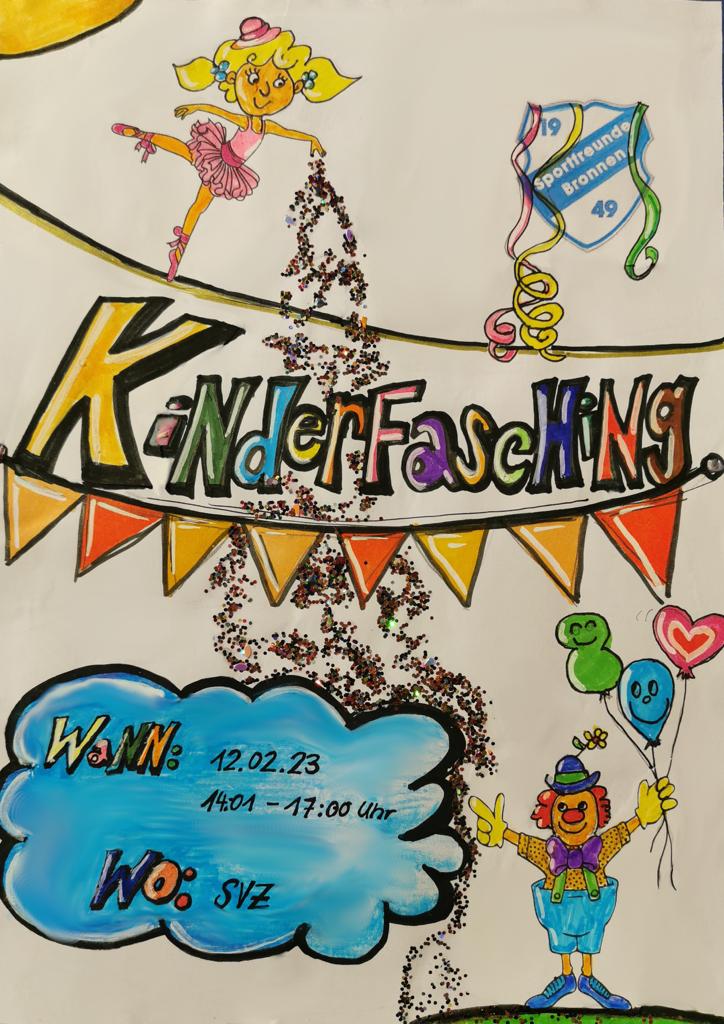 19
Sportfreunde
Bronnen
49
KiNderFascHiNg.
WaNN: 12.02.23
14:01 - 17:00 Uhr
Wo: SVZ